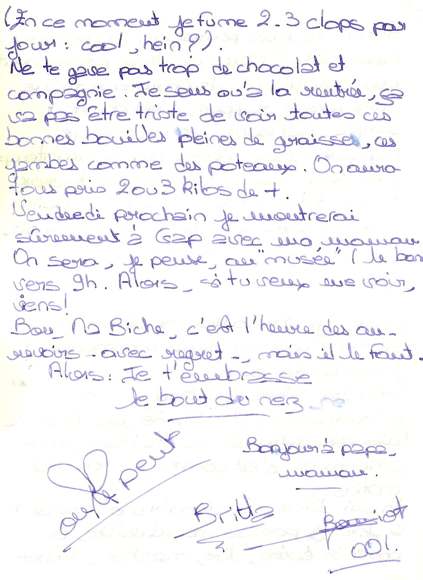 (En ce moment je fume 2-3 clops par
jour : cool, hein ?).
Ne te gave pas trop de chocolat et
compagnie. Je sens qu'à la rentrée, ça
va pas être triste de voir toutes ces
bonnes bouilles pleines de graisse, ces
jambes comme des poteaux. On aura
tous pris 2 ou 3 kilos de +.
Vendredi prochain je montrerai
sûrement à Gap avec ma maman
On sera, je pense, au "musée" (le bar)
vers 9h. Alors, si tu veux me voir,
viens!
Bon, Ma Biche, c'est l'heure des au-
revoirs - avec regret -, mais il le faut.
Alors : Je t'embrasse
le bout du nez
Bonjour à papa
maman.
on peut
Britta
001.